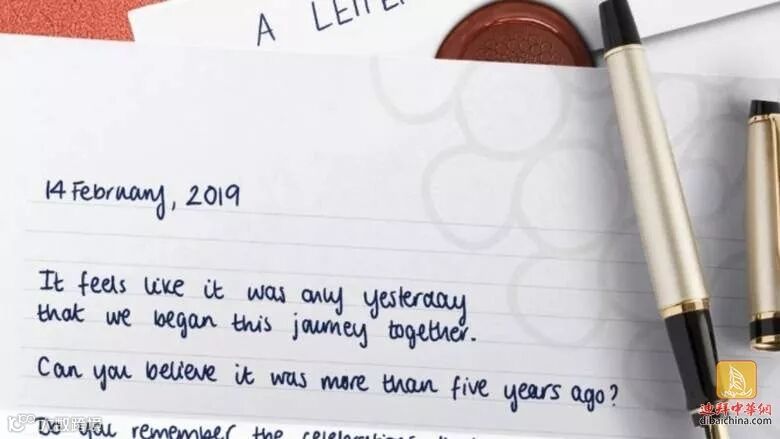 A LETTER
14 February, 2019
It feels like it was only yesterday
that we began this journey together.
Can you believe it was more than five years ago?
Do you remember the celebrations
迪拜中華網
dibaichina.com